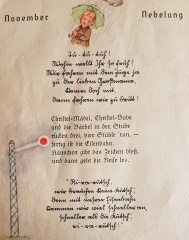 November Nebelung
Tu-tu-tuh!
Wohin wollt Ihr so früh?
Wir fahren mit dem Zuge ja
zu der lieben Großmama,
komm doch mit,
dann fahren wir zu dritt!
Christel-Mädel, Christel-Bube
und die Bärbel in der Stube
rücken drei, vier Stühle dann, —
fertig ist die Eisenbahn.
Hänschen gibt das Zeichen bloß,
und dann geht die Reise los.
"Ri-ra-rutsch,
wir brauchen keine Kutsch,
denn mit unsrer Eisenbahn
kommen wir viel schneller an,
schneller als die Kutsch,
ri-ra-rutsch!"